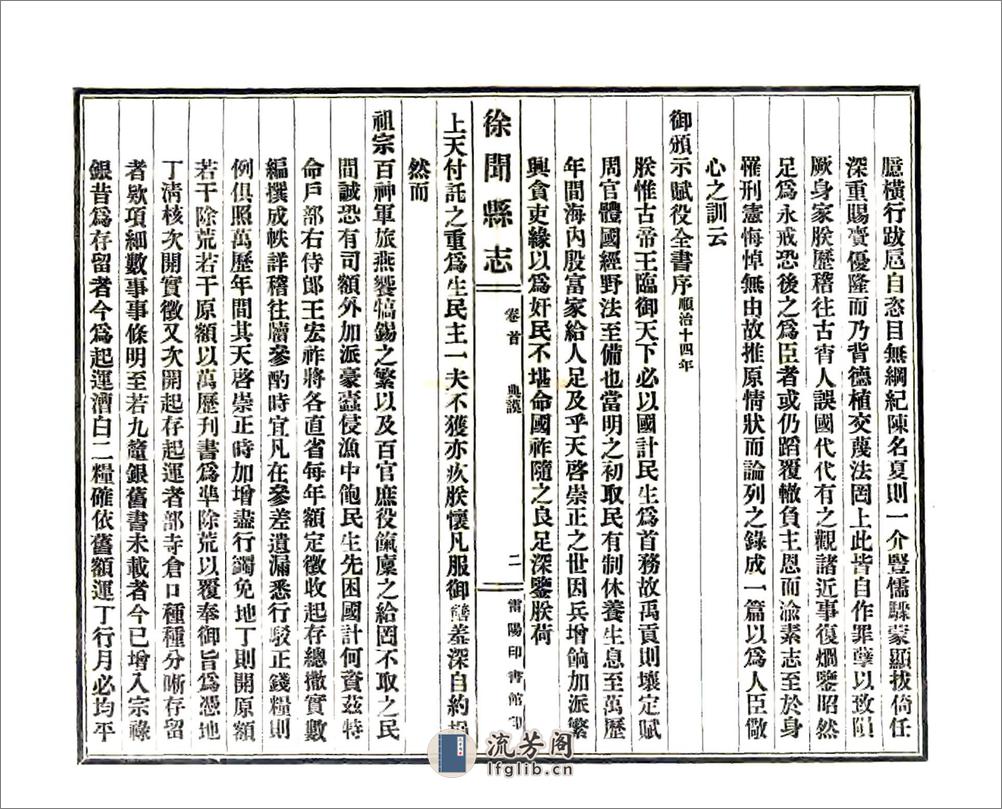 臆橫行跋扈自恣目無綱紀陳名夏則一介豎儒驟蒙顯拔倚任
深重賜賚優隆而乃背德植交蔑法罔上此皆自作罪孽以致隕
厥身家朕歷稽往古宵人誤國代代有之觀諸近事復爛鑒昭然
足爲永戒恐後之爲臣者或仍蹈覆轍負主恩而渝素志至於身
罹刑憲悔悼無由故推原情狀而論列之錄成一篇以爲人臣儆
心之訓云
御頒示賦役全書序順治十四年
朕惟古帝王臨御天下必以國計民生爲首務故禹貢則壤定賦
周官體國經野法至備也當明之初取民有制休養生息至萬歷
年間海內殷富家給人足及乎天啓崇正之世因兵增餉加派繁
興貪吏緣以爲奸民不堪命國祚隨之良足深鑒朕荷
徐聞縣志
卷首
典謨
二
雷陽印書館印
上天付託之重爲生民主一夫不獲亦疚朕懷凡服御膳羞深自約損
然而
祖宗百神軍旅燕饗犒錫之繁以及百官庶役餼廩之給罔不取之民
間誠恐有司額外加派豪蠹侵漁中飽民生先困國計何資茲特
命戶部右侍郎王宏祚將各直省每年額定徵收起存總撒實數
編撰成帙詳稽往牘參酌時宜凡在參差遺漏悉行駁正錢糧則
例俱照萬歷年間其天啓崇正時加增盡行蠲免地丁則開原額
若干除荒若干原額以萬歷刊書爲準除荒以覆奉御旨爲憑地
丁淸核次開實徵又次開起存起運者部寺倉口種種分晰存留
者欵項細數事事條明至若九釐銀舊書未載者今已增入宗祿
銀昔爲存留者今爲起運漕白二糧確依舊額運丁行月必均平
流芳阁
lfglib.cn